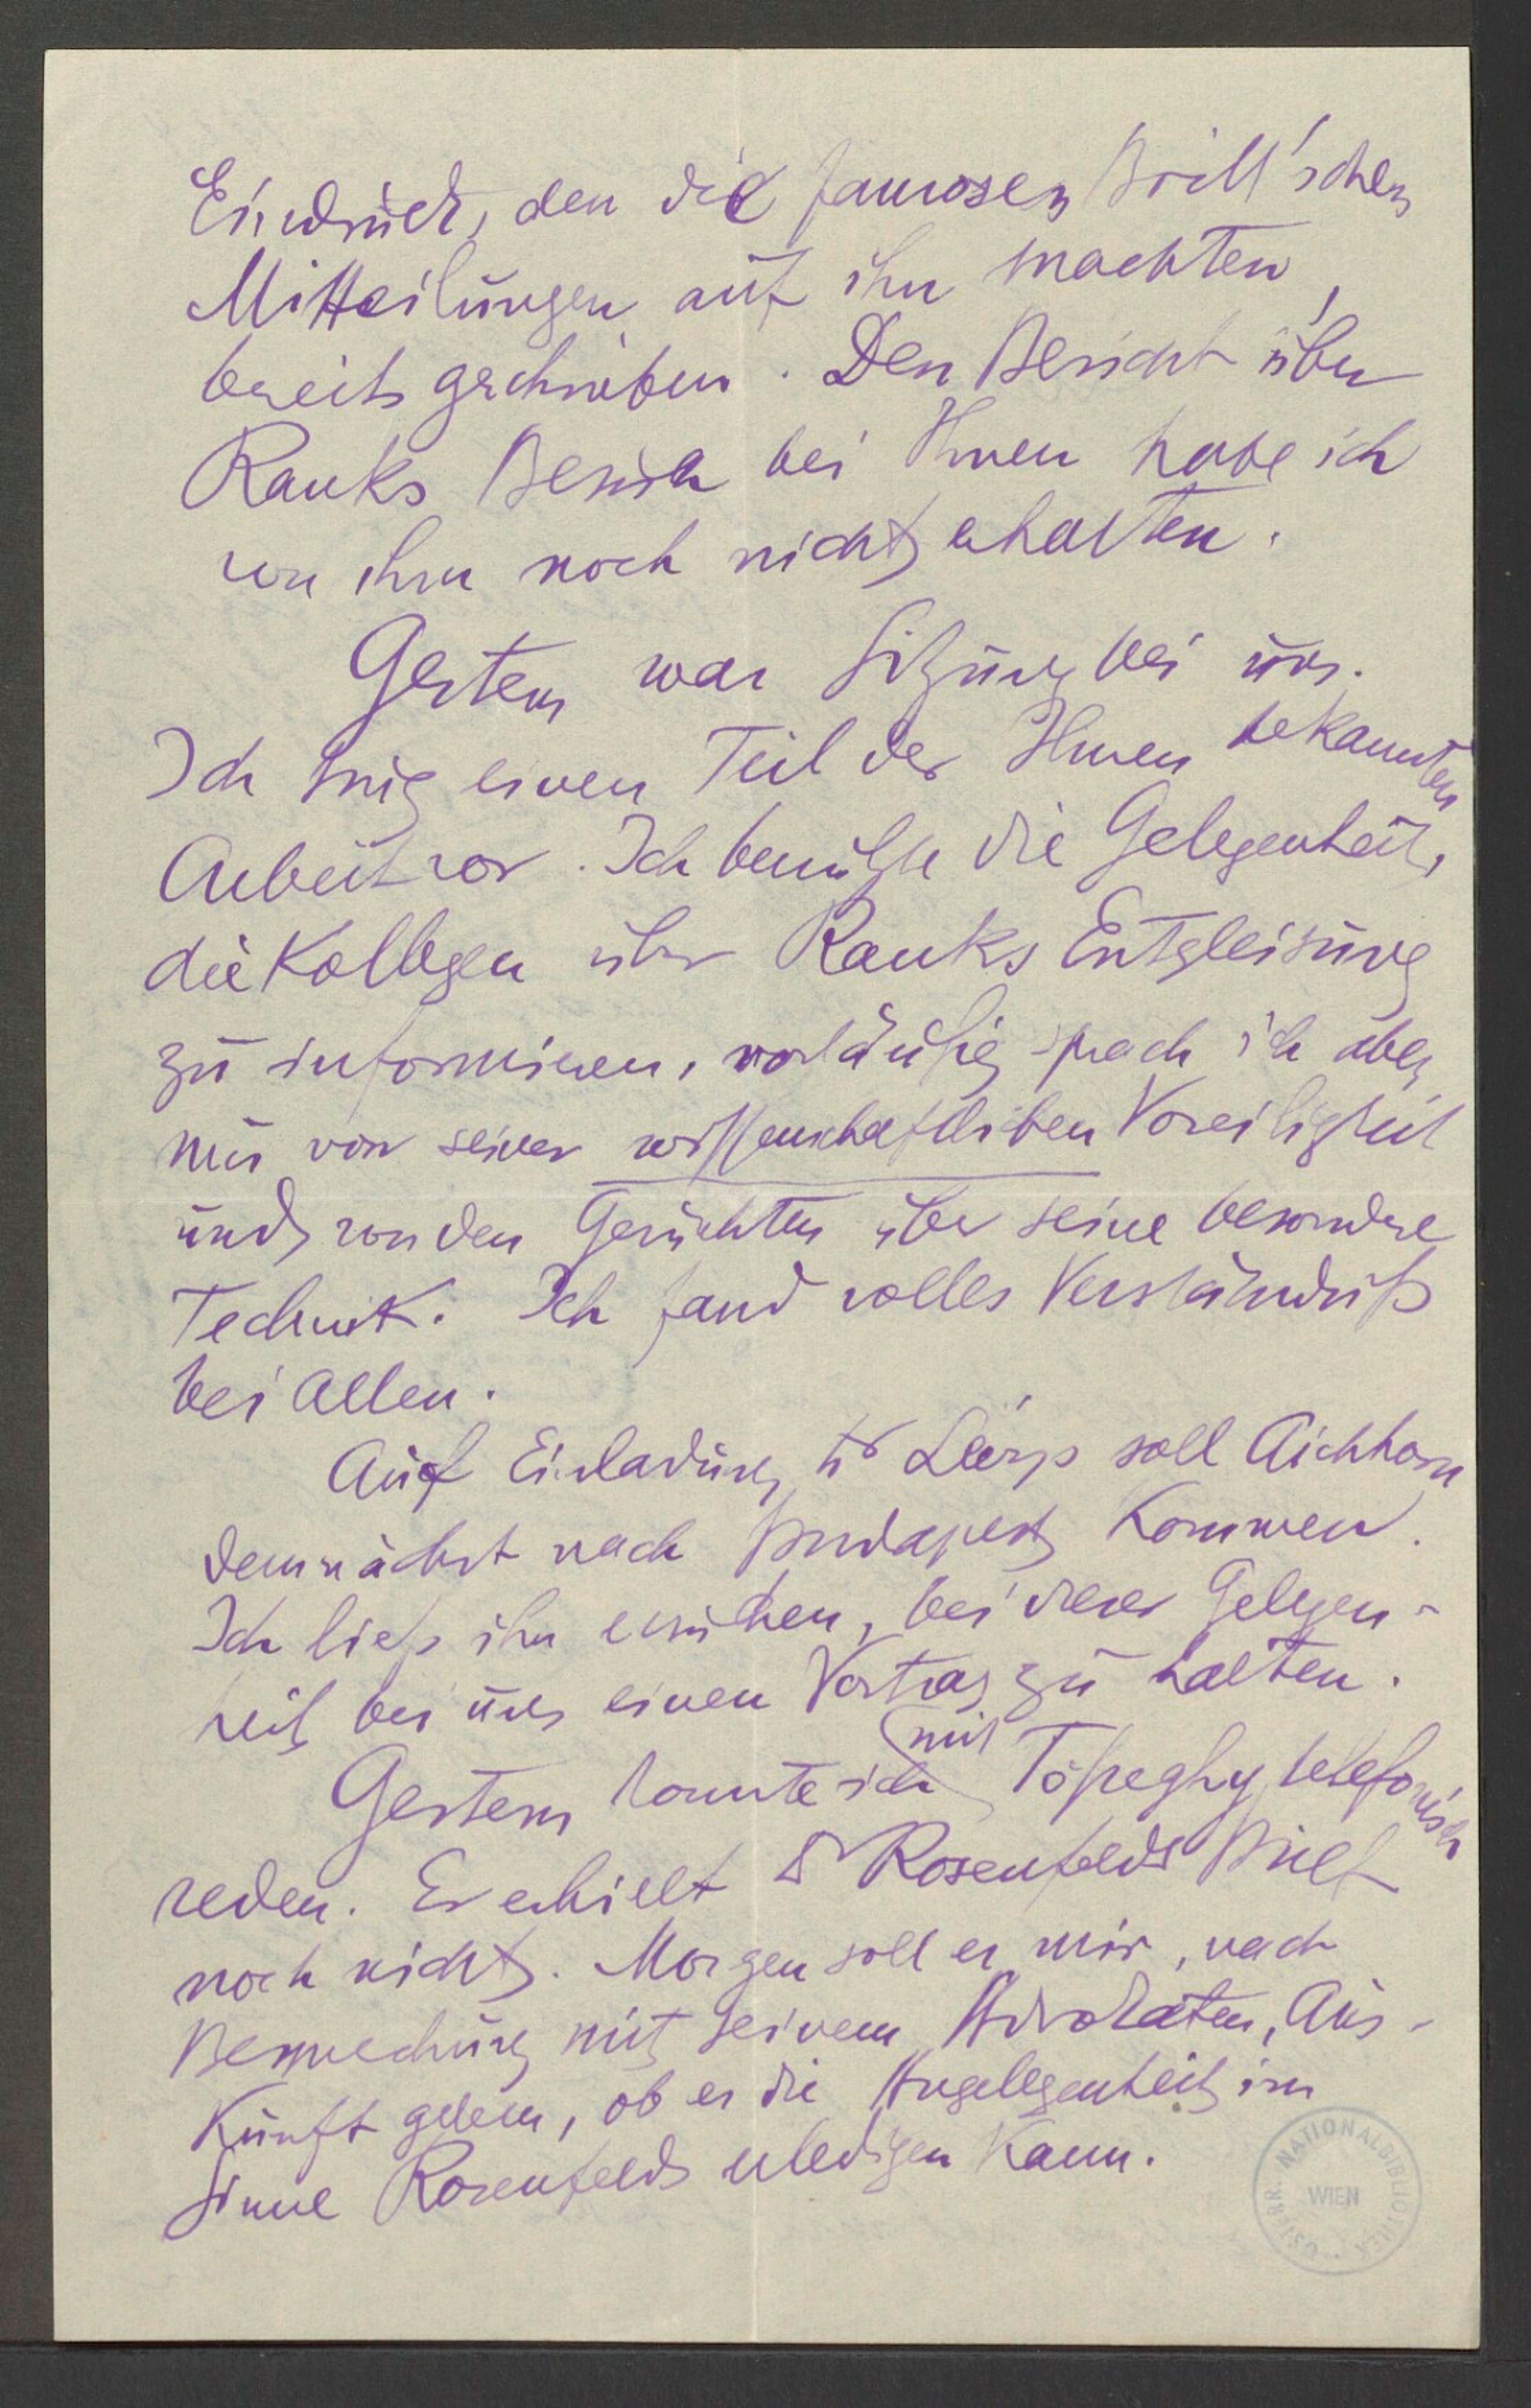 Eindruck, den die famosen Brill'schen
Mitteilungen auf ihn machten,
bereits geschrieben. Den Bericht über
Ranks Besuch bei Ihnen habe ich
von ihm noch nicht erhalten.
Gestern war Sitzung bei uns.
Ich trug einen Teil der Ihnen bekannten
Arbeit vor. Ich benützte die Gelegenheit,
die Kollegen über Ranks Entgleisung
zu informieren, vorläufig sprach ich aber
nur von seiner wissenschaftlichen Voreiligkeit
und von den Gerüchten über seine besondere
Technik. Ich fand volles Verständniß
bei Allen.
Auf Einladung Dr Lévys soll Aichhorn
demnächst nach Budapest kommen.
Ich ließ ihn ersuchen, bei dieser Gelegen-
heit bei uns einen Vortrag zu halten.
Gestern konnte ich mit Tószeghy telefonisch
reden. Er erhielt Dr Rosenfelds Brief
noch nicht. Morgen soll er mir, nach
Besprechung mit seinem Advokaten, Aus-
kunft geben, ob er die Angelegenheit im
Sinne Rosenfelds erledigen kann.
ÖSTERR. NATIONALBIBLIOTHEK
WIEN